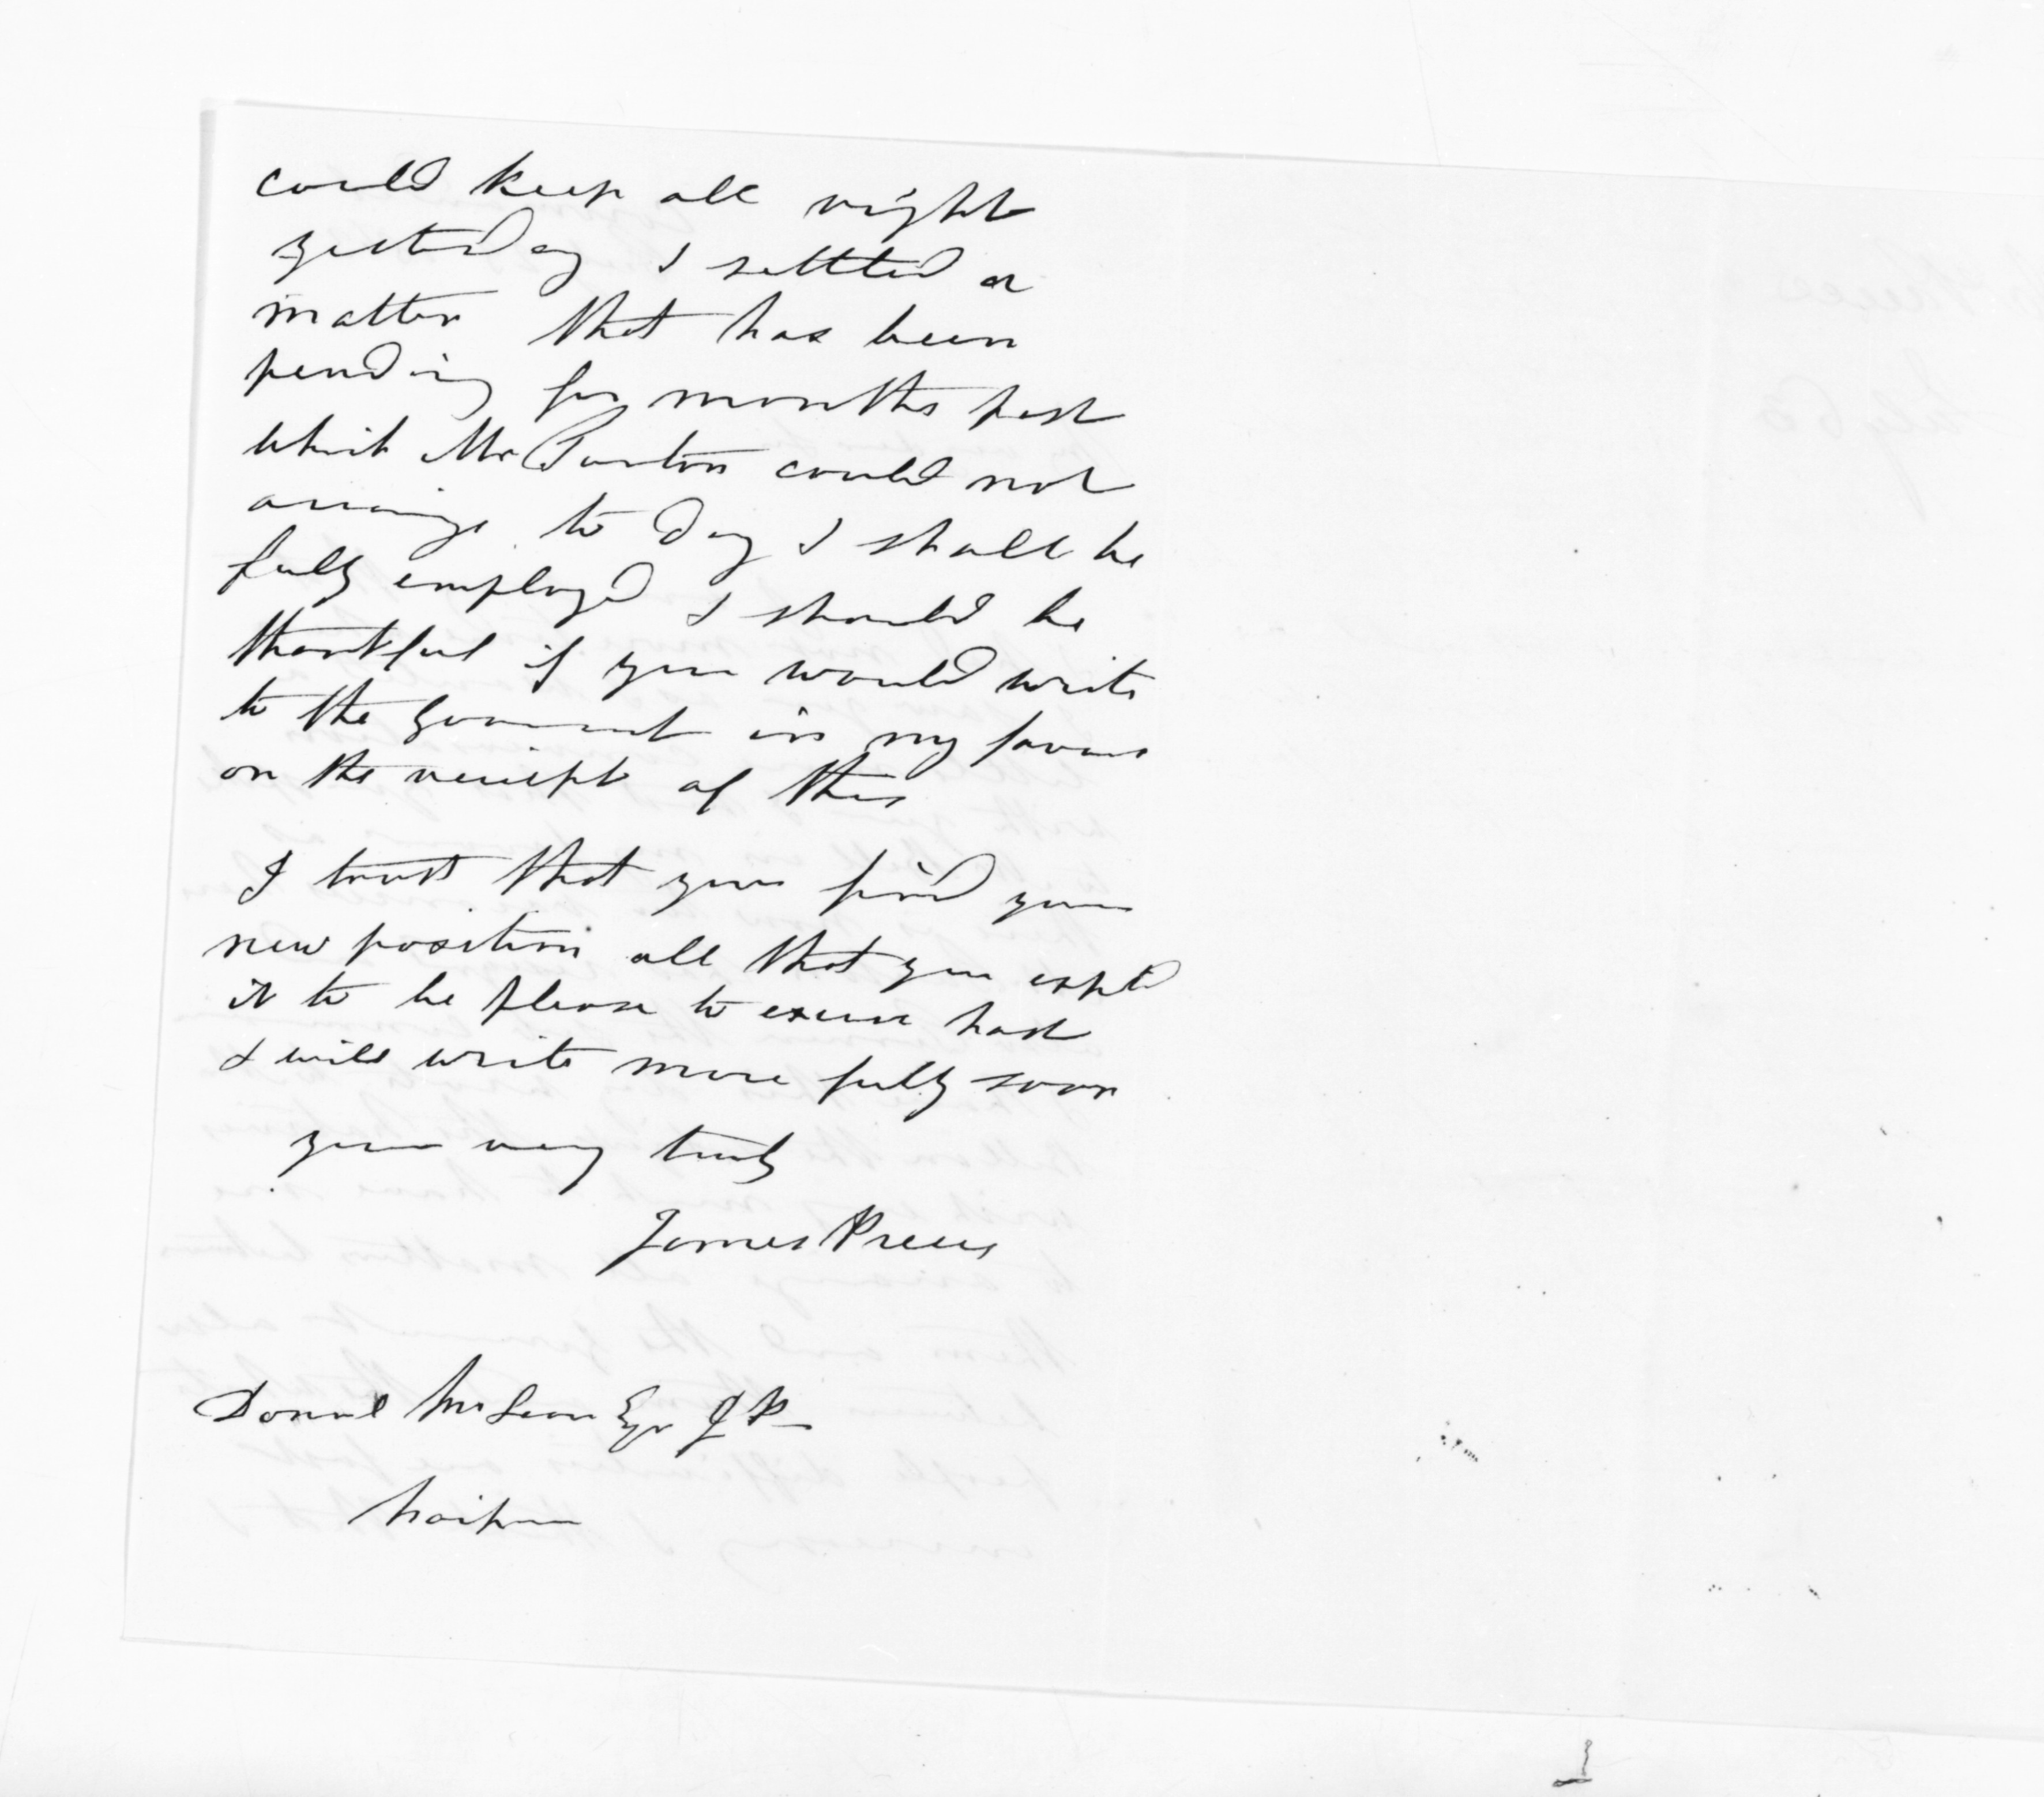 could keep all right
yesterday I settled a
matter that has been
pending for months past
which Mr Purton could not
arrange to day I shall be
fully employed I should be
thankful if you would write
to the Goverment in my favour
on the reciept of this
I trust that you find your
new position all that you expted
it to be please to excuse hast
I will write more fully soon
yours very truly
James Preece
Donal McLean Esqr J P
Waipu